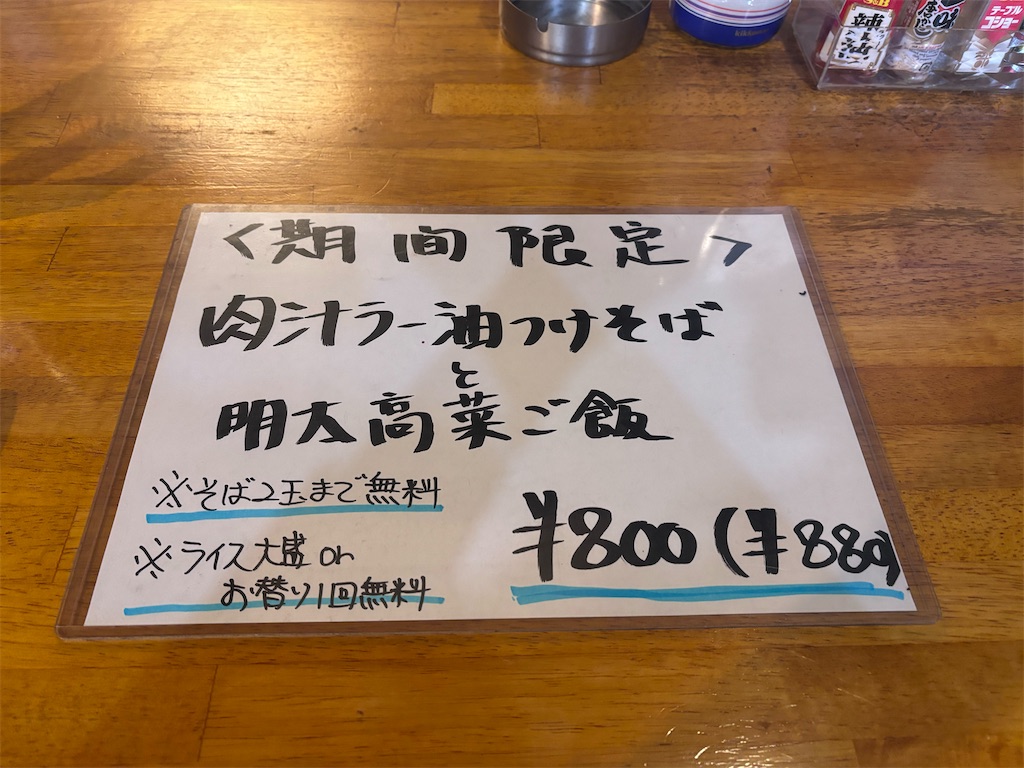 辣油
テーブル
コショー
〈期間限定〉
肉汁ラー油つけそば
と
明太高菜ご飯
※そば2玉まで無料
※ライス大盛 or
お替り1回無料
¥800(¥880)